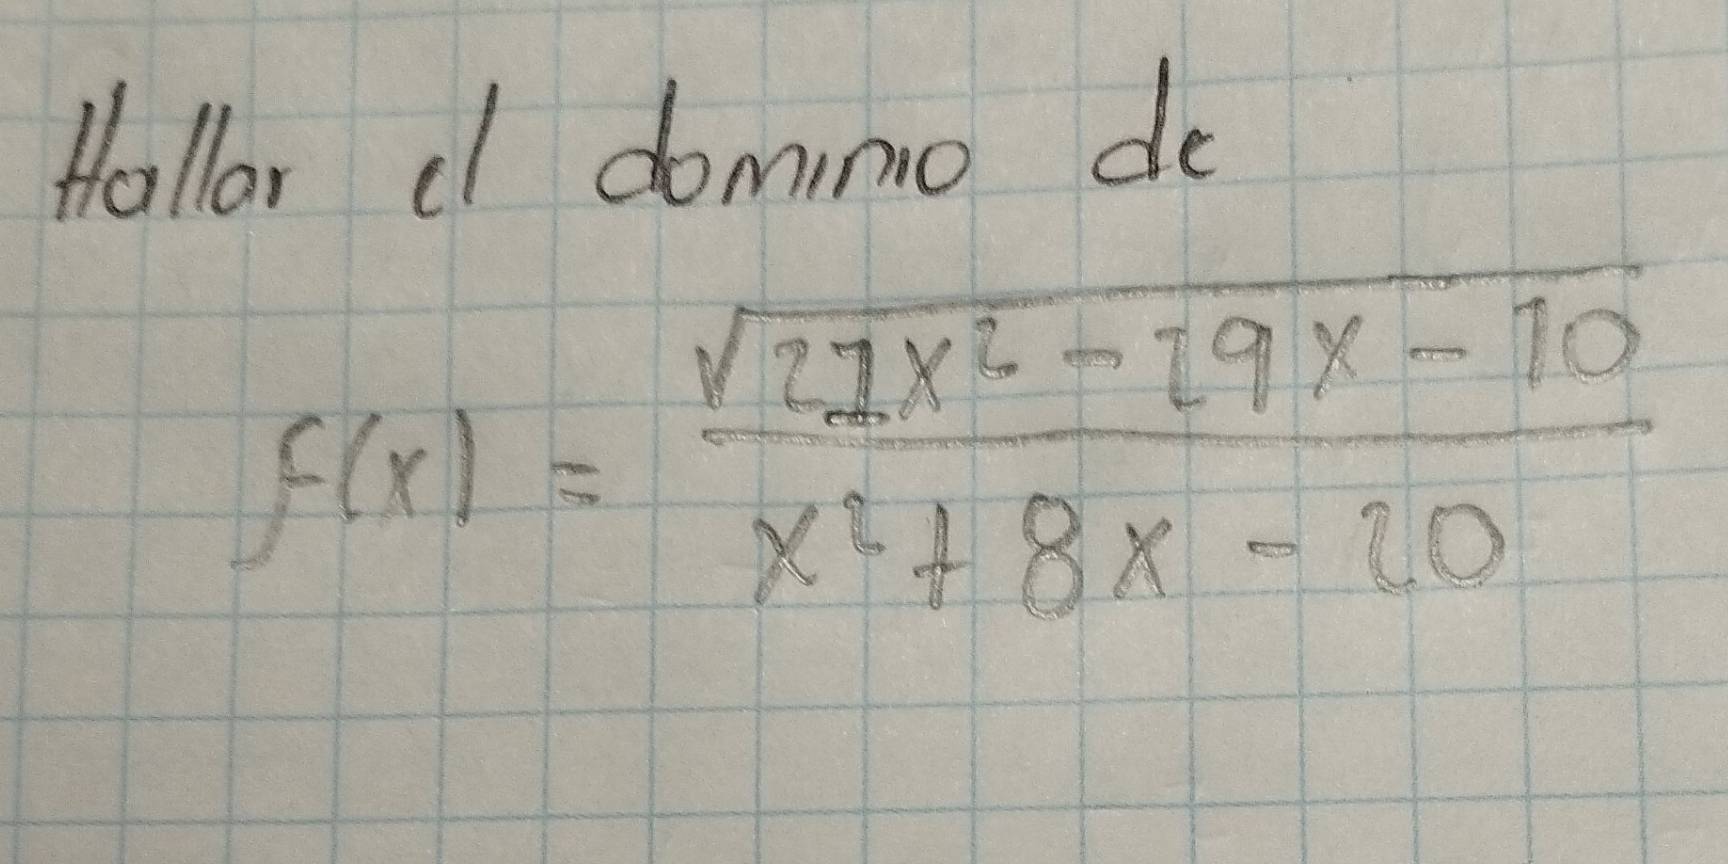 Hallar el dominio de
f(x) = √(21x² - 29x - 10) / (x² + 8x - 20)